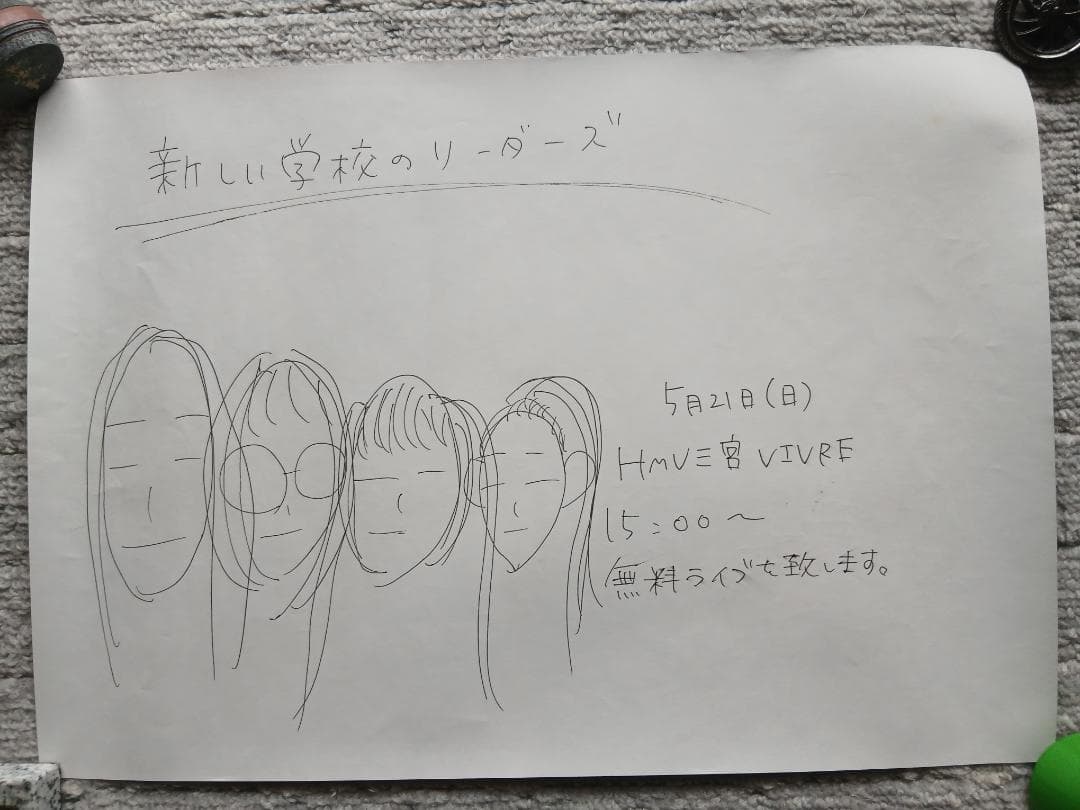 新しい学校のリーダーズ
5月21日(日)
HMV三宮VIVRE
15:00～
無料ライブを致します。